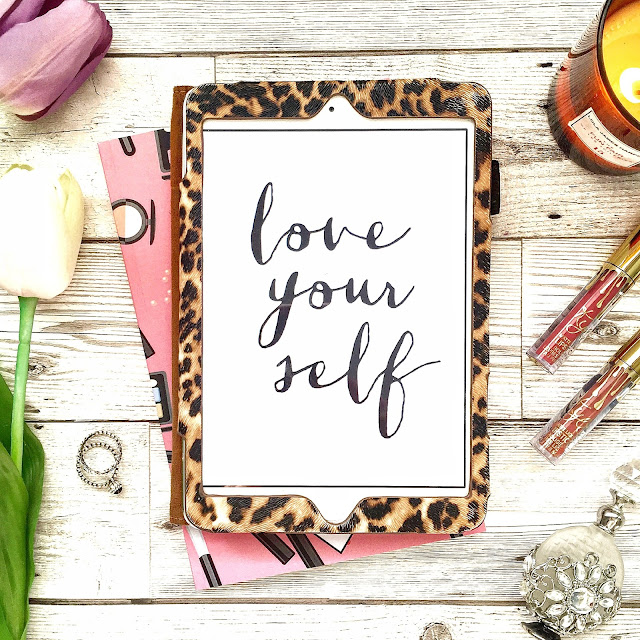 love
your
self